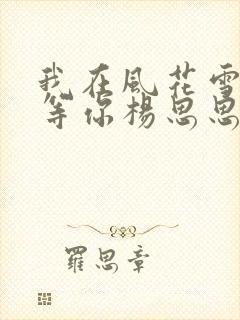 我在風花雪
等你楊思思
羅思章